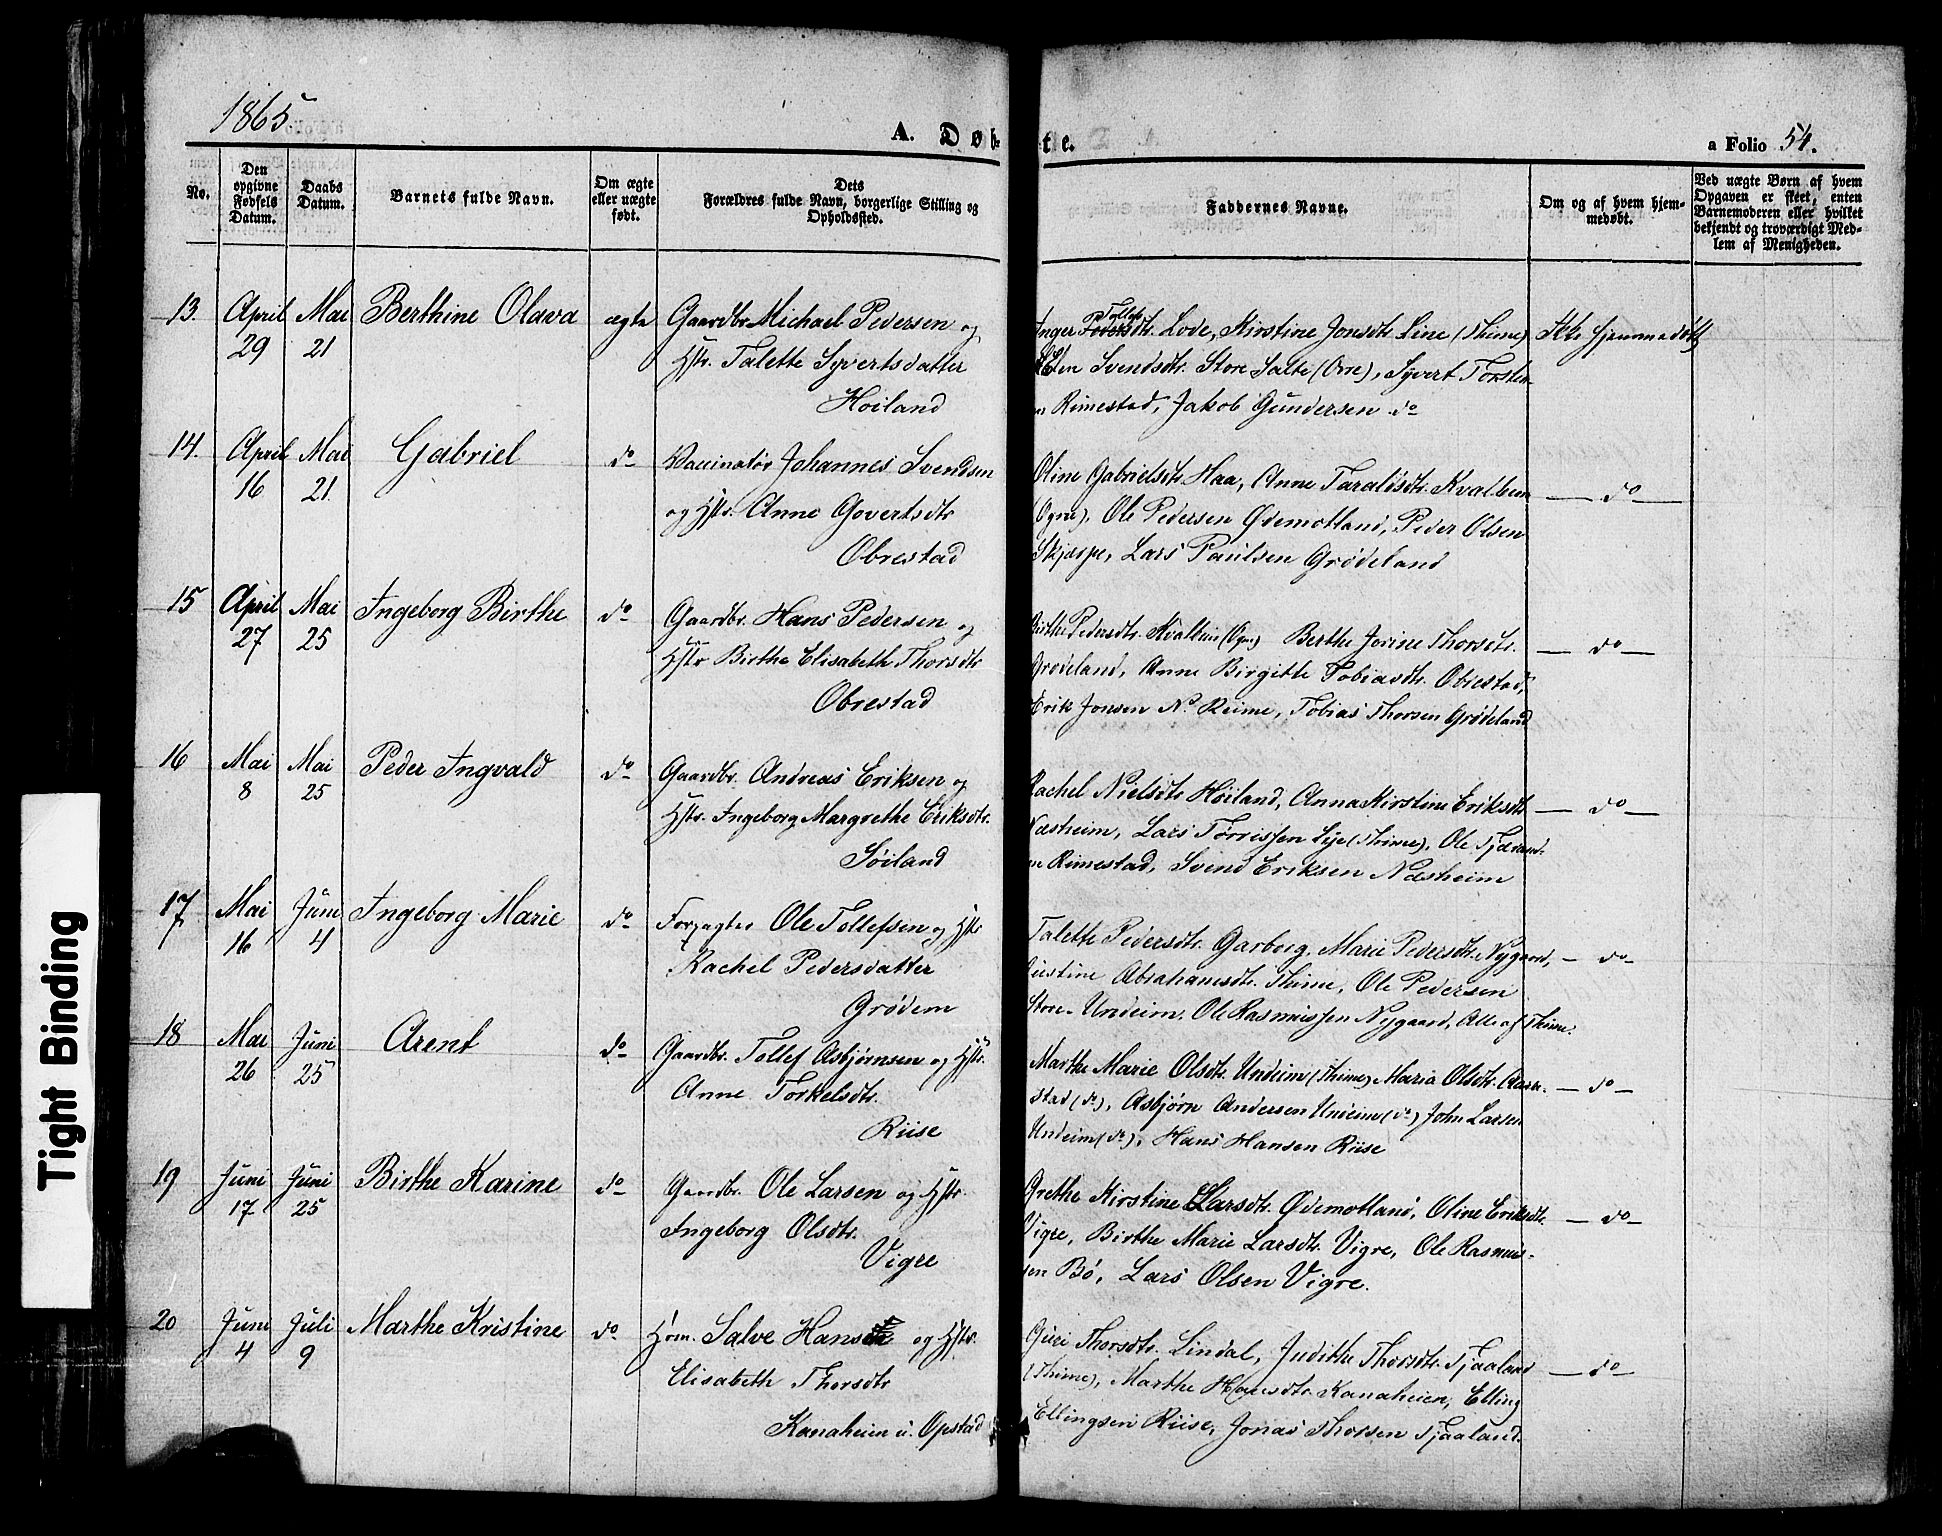 1865.
A. Døb-
te.
a Folio 54.
No.
Den
opgivne
Fødsels
Datum.
Daabs
Datum.
Barnets fulde Navn.
Om ægte
eller uægte
født.
Dets
Forældres fulde Navn, borgerlige Stilling og
Opholdssted.
Faddernes Navne.
Om og af hvem hjem-
medøbt.
Ved uægte Børn af hvem
Opgaven er skeet, enten
Barnemoderen eller hvilket
bekjendt og troværdigt Med-
lem af Menigheden.
13. April 29 Mai 21 Berthine Olava ægte
Gaardbr. Michael Pedersen og
Hstr. Talette Syvertsdatter
Høiland
Inger Tollefsdtr. Lode, Kirstine Jonsdtr. Line (Thime)
Svendsdtr. Store Salte (Orre), Syvert Torsten-
Rimestad, Jakob Gundersen do
Ikke hjemmedøbt
14. April 16 Mai 21 Gabriel do
Vaccinatør Johannes Svendsen
og Hstr. Anne Govertsdtr
Obrestad
Oline Gabrielsdtr. Haa, Anne Taraldsdtr. Kvalbein
(Ogne), Ole Pedersen Ødemotland, Peder Olsen
Skjærpe, Lars Paulsen Grødeland
— do —
15 April 27 Mai 25 Ingeborg Birthe do
Gaardbr. Hans Pedersen og
Hstr Birthe Elisabeth Thorsdtr
Obrestad
Birthe Pedersdtr. Kvalbein (Ogne) Berthe Jorine Thorsdtr.
Grødeland, Anne Birgitte Tobiasdtr. Obrestad,
Erik Jonsen No Reime, Tobias Thorsen Grødeland
— do —
16 Mai 8 Mai 25 Peder Ingvald do
Gaardbr. Andreas Eriksen og
Hstr. Ingeborg Margrethe Eriksdtr.
Søiland
Rachel Nielsdtr Høiland, Anna Kirstine Eriksdtr.
Næsheim, Lars Tørrissen Lye (Thime), Ole Tjærand-
Rimestad, Svend Eriksen Næsheim
— do —
17 Mai 16 Juni 4 Ingeborg Marie do
Forpagter Ole Tollefsen og Hstr
Rachel Pedersdatter
Grødem
Talette Pedersdtr. Garborg, Marie Pedersdtr. Nygaard,
Abrahamsdtr. Thime, Ole Pedersen
Store-Undeim, Ole Rasmussen Nygaard, Alle af Thime.
— do —
18 Mai 26 Juni 25 Arent do
Gaardbr. Tollef Asbjørnsen og Hstr.
Anne Torkelsdtr.
Riise
Marthe Marie Olsdtr. Undeim (Thime) Maria Olsdtr.
stad (do), Asbjørn Andersen Undeim (do) John Larsen
Undeim (do), Hans Hansen Riise
— do —
19 Juni 17 Juni 25 Birthe Karine do
Gaardbr. Ole Larsen og Hstr.
Ingeborg Olsdtr.
Vigre
Grethe Kirstine Larsdtr. Ødemotland, Oline Eriksdtr.
Vigre, Birthe Marie Larsdtr. Vigre, Ole Rasmus-
sen Bø, Lars Olsen Vigre.
— do —
20 Juni 4 Juli 9 Marthe Kristine do
Hsm. Salve Hansen og Hstr.
Elisabeth Thorsdtr
Kanaheien u. Opstad
Guri Thorsdtr. Lindal, Judithe Thorsdtr. Tjaaland
(Thime), Marthe Hansdtr. Kanaheien, Elling
Ellingsen Riise, Jonas Thorsen Tjaaland.
— do —
Tight Binding